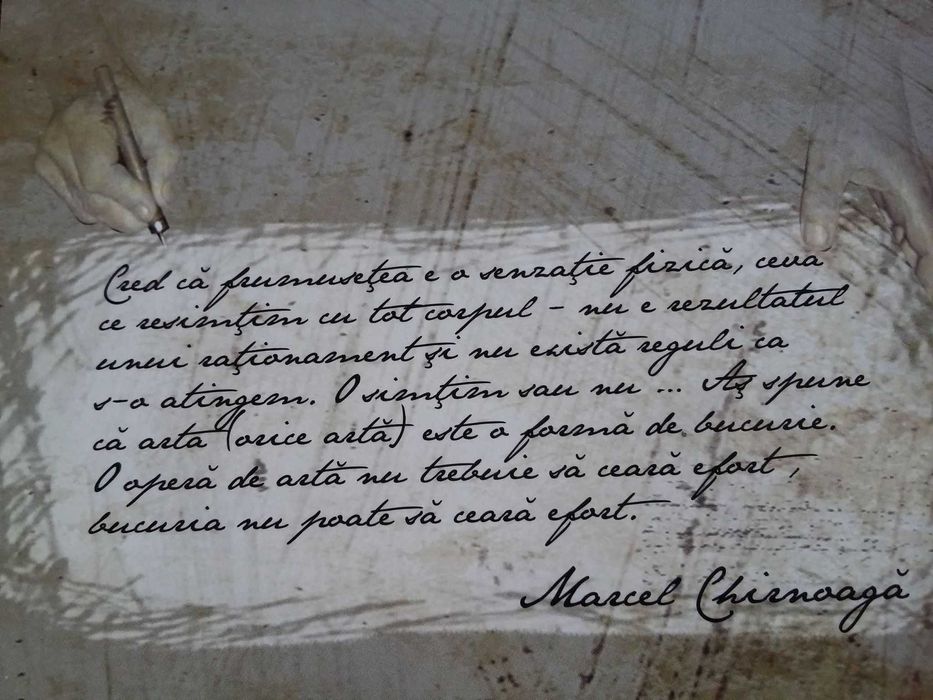 Cred că frumuseţea e o senzaţie fizică, ceva
ce resimţim cu tot corpul - nu e rezultatul
unui raţionament şi nu există reguli ca
s-o atingem. O simţim sau nu ... Aş spune
că arta (orice artă) este o formă de bucurie.
O operă de artă nu trebuie să ceară efort,
bucuria nu poate să ceară efort.
Marcel Chirnoagă